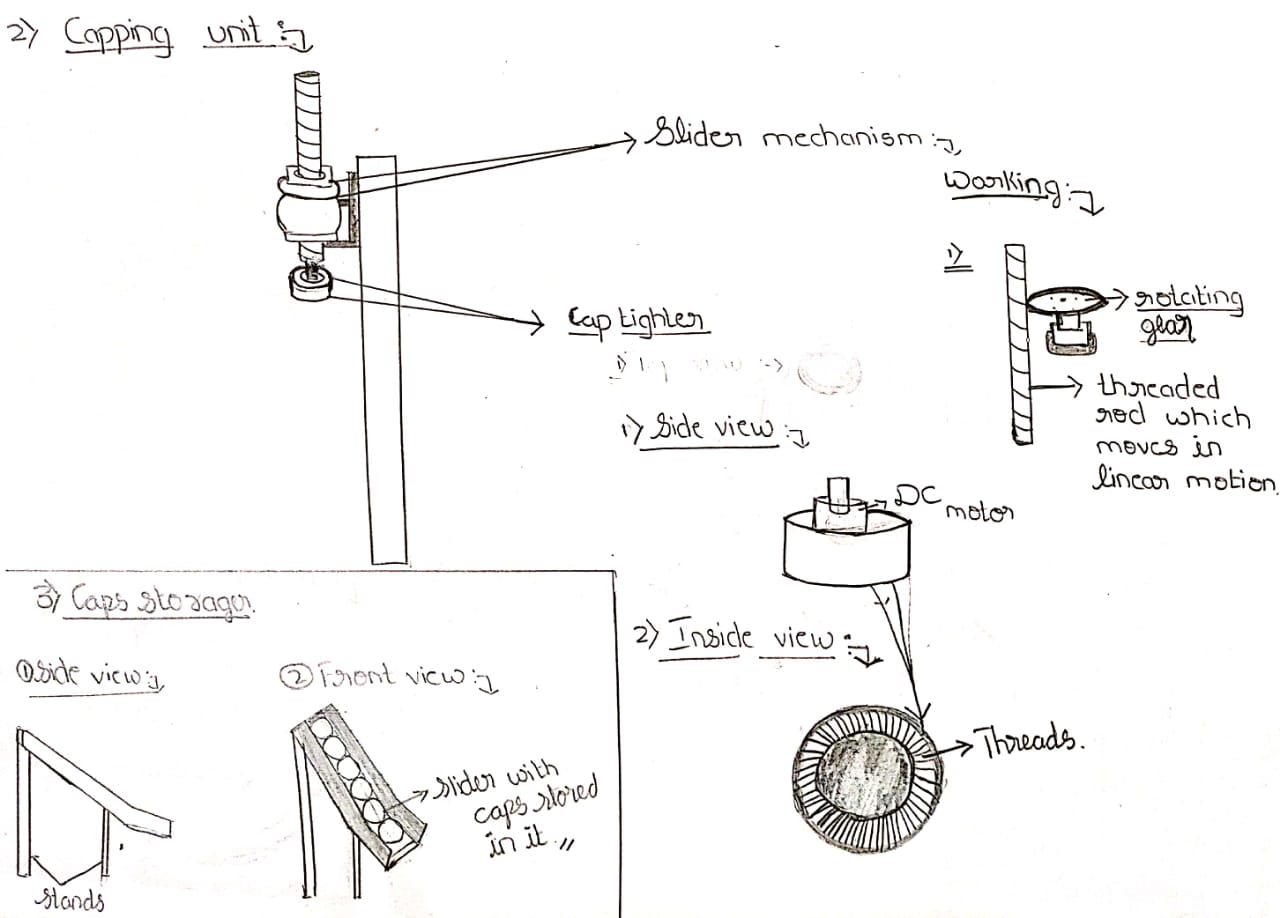 2) Capping unit :
Slider mechanism :
Working :
1)
rotating
gear
threaded
rod which
moves in
linear motion.
Cap tighter
1) Side view :
DC motor
2) Inside view :
Threads.
3) Caps storager.
① Side view :
stands
② Front view :
slider with
caps stored
in it. //